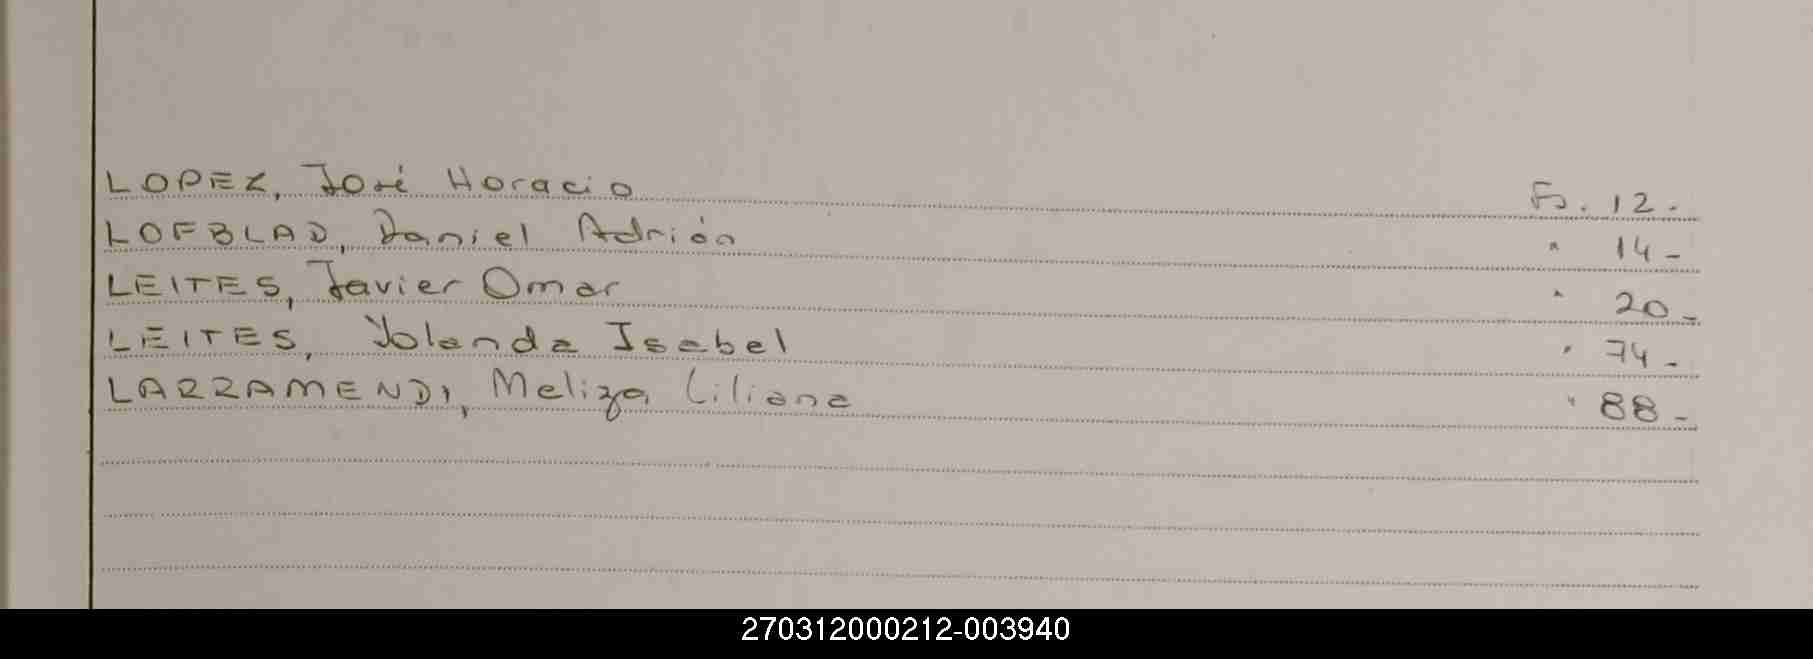 LOPEZ, José Horacio Fs. 12.-
LOFBLAD, Daniel Adrián " 14-
LEITES, Javier Omar " 20-
LEITES, Yolanda Isabel " 74-
LARRAMENDI, Meliza Liliana " 88-
270312000212-003940